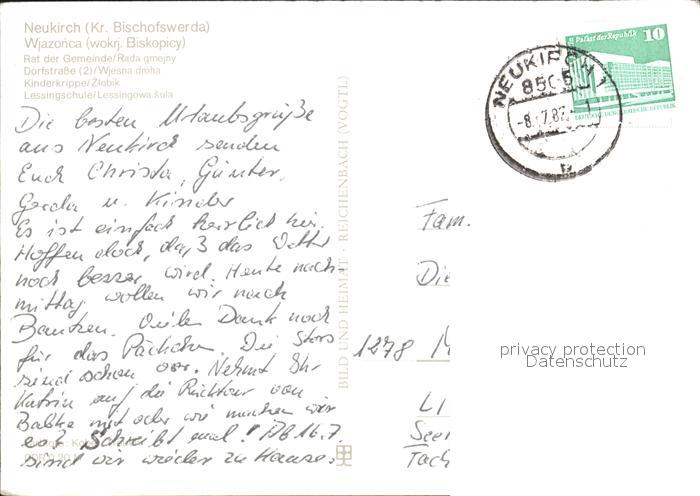 Neukirch (Kr. Bischofswerda)
Wjazońca (wokrj. Biskopicy)
Rat der Gemeinde/Rada gmejny
Dorfstraße (2)/Wjesna dróha
Kinderkrippe/Žłobik
Lessingschule/Lessingowa šula
Die besten Urlaubsgrüße
aus Neukirch senden
Euch Christa, Günter,
Gerda u. Kinder
Es ist einfach herrlich hier.
Hoffen doch, daß das Wetter
noch besser wird. Heute nach-
mittag wollen wir nach
Bautzen. Vielen Dank noch
für das Päckchen. Die Stars
sind schon vor. Nehmt Ihr
Katrin auf die Radtour von
mit oder wie machen wir
es? Schreibt mal! Ab 16.7.
sind wir wieder zu Hause.
BILD UND HEIMAT · REICHENBACH (VOGTL)
Palast der Republik 10
DEUTSCHE DEMOKRATISCHE REPUBLIK
NEUKIRCH 1
8505
-8.-7.82
b
Fam.
Die
1278 M
privacy protection
Datenschutz
LI
See
Tach